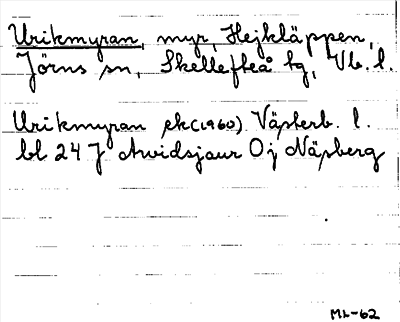 Urikmyran, myr, Hejkläppen,
Jörns sn, Skellefteå tg, Vb. l.
Urikmyran ek(1960) Västerb. l.
bl 24 J Arvidsjaur Oj Näsberg
ML-62